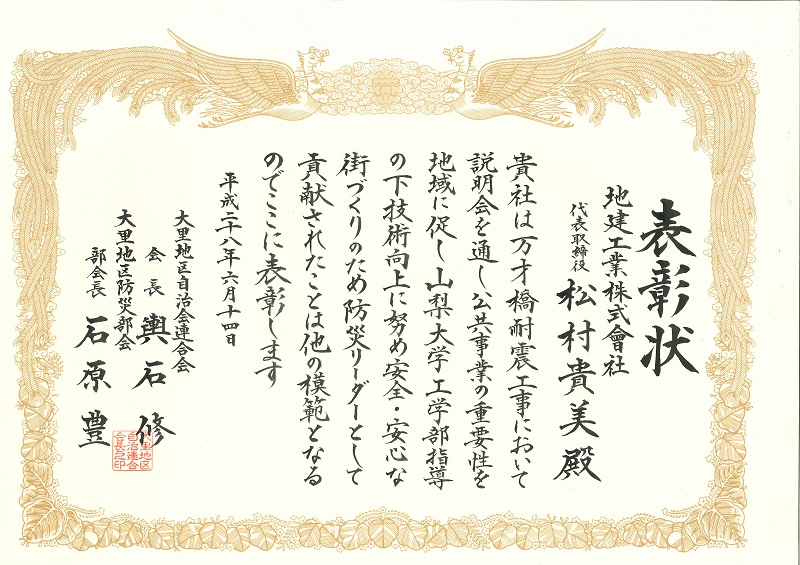 表彰状
地建工業株式會社
代表取締役 松村貴美殿
貴社は万才橋耐震工事において
説明会を通し公共事業の重要性を
地域に促し山梨大学工学部指導
の下技術向上に努め安全・安心な
街づくりのため防災リーダーとして
貢献されたことは他の模範となる
のでここに表彰します
平成二十八年六月十四日
大里地区自治会連合会
会長 輿石修
大里地区防災部会
部会長 石原豊
大里地区
自治連合
会長之印